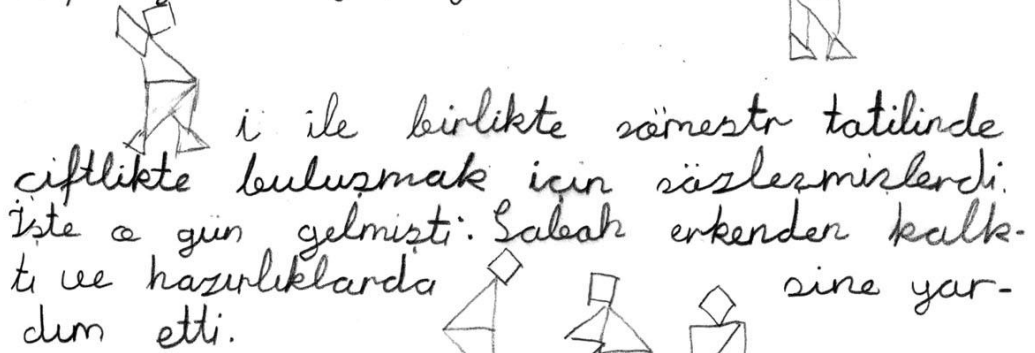 i ile birlikte sömestr tatilinde
çiftlikte buluşmak için sözleşmişlerdi.
İşte o gün gelmişti. Sabah erkenden kalk-
tı ve hazırlıklarda sine yar-
dım etti.